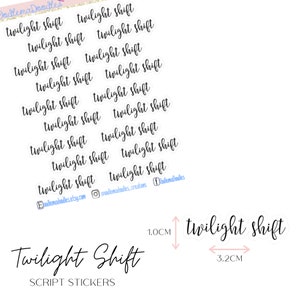 twilight shift
twilight shift twilight shift
twilight shift twilight shift
twilight shift twilight shift
twilight shift twilight shift
twilight shift twilight shift
twilight shift twilight shift
twilight shift twilight shift
twilight shift twilight shift
twilight shift
1.0CM
twilight shift
3.2CM
Twilight Shift
SCRIPT STICKERS